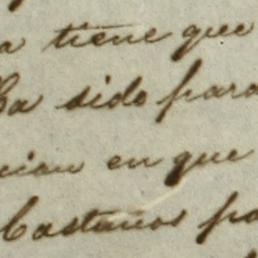 a tiene que
Ha sido para
cion en que
Castaños pa